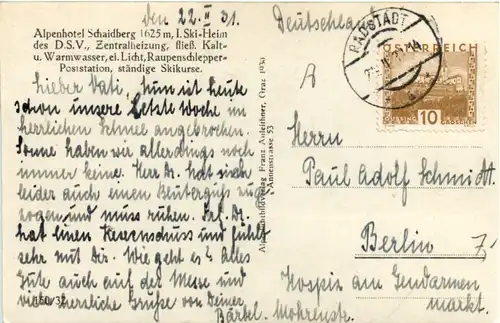 den 22. II 31.
Alpenhotel Schaidberg 1625 m, I. Ski-Heim
des D.S.V., Zentralheizung, fließ. Kalt-
u. Warmwasser, el. Licht, Raupenschlepper-
Poststation, ständige Skikurse.
Lieber Vati, Nun ist heute
schon unsere letzte Woche im
herrlichen Schnee angebrochen.
Sonne haben wir allerdings noch
immer keine. Herr Dr. hat sich
leider auch einen Bluterguß zu
gezogen und muss ruhen. Frl. Dr.
hat einen Hexenschuss und fühlt
sehr mit Dir. Wie geht es? Alles
Gute auch auf der Messe und
viele herrliche Grüße von Deiner
Bärbel.
Alpenbildverlag Franz Anleithner, Graz 1930
Annenstrasse 53
Deutschland
RADSTADT
ÖSTERREICH
10
GROSCHEN
Herrn
Paul Adolf Schmidt
Berlin
Hospiz am Gendarmen
markt.
Mohrenstr.